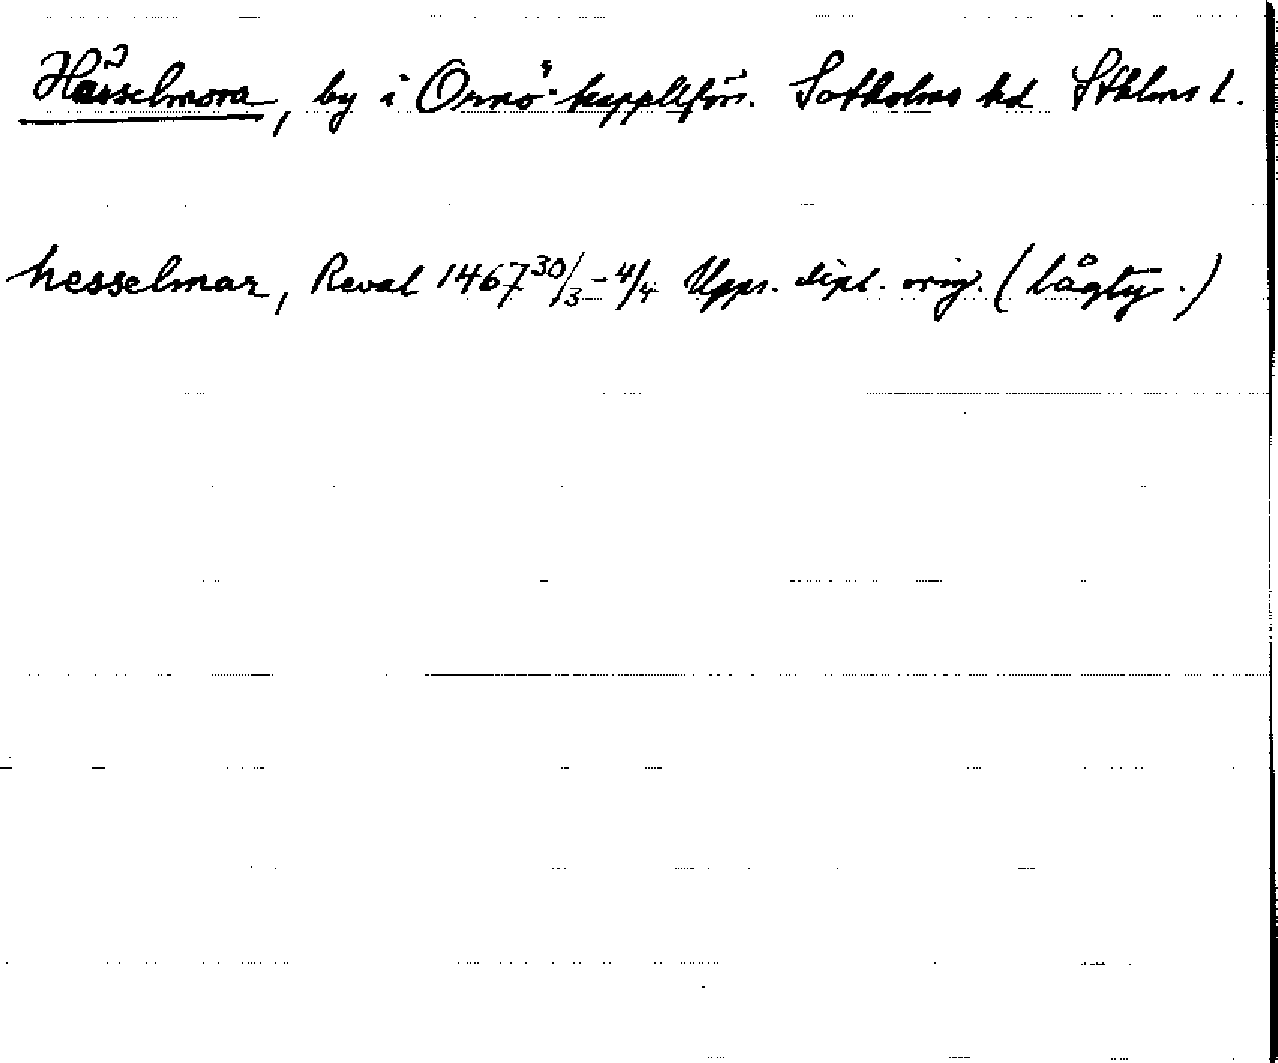 Hässelmora, by i Ornö kappellförs. Sotholms hd Sthlms l.
hesselmar, Reval 1467 30/3 - 4/4 Upps. dipl. orig. (lågty.)